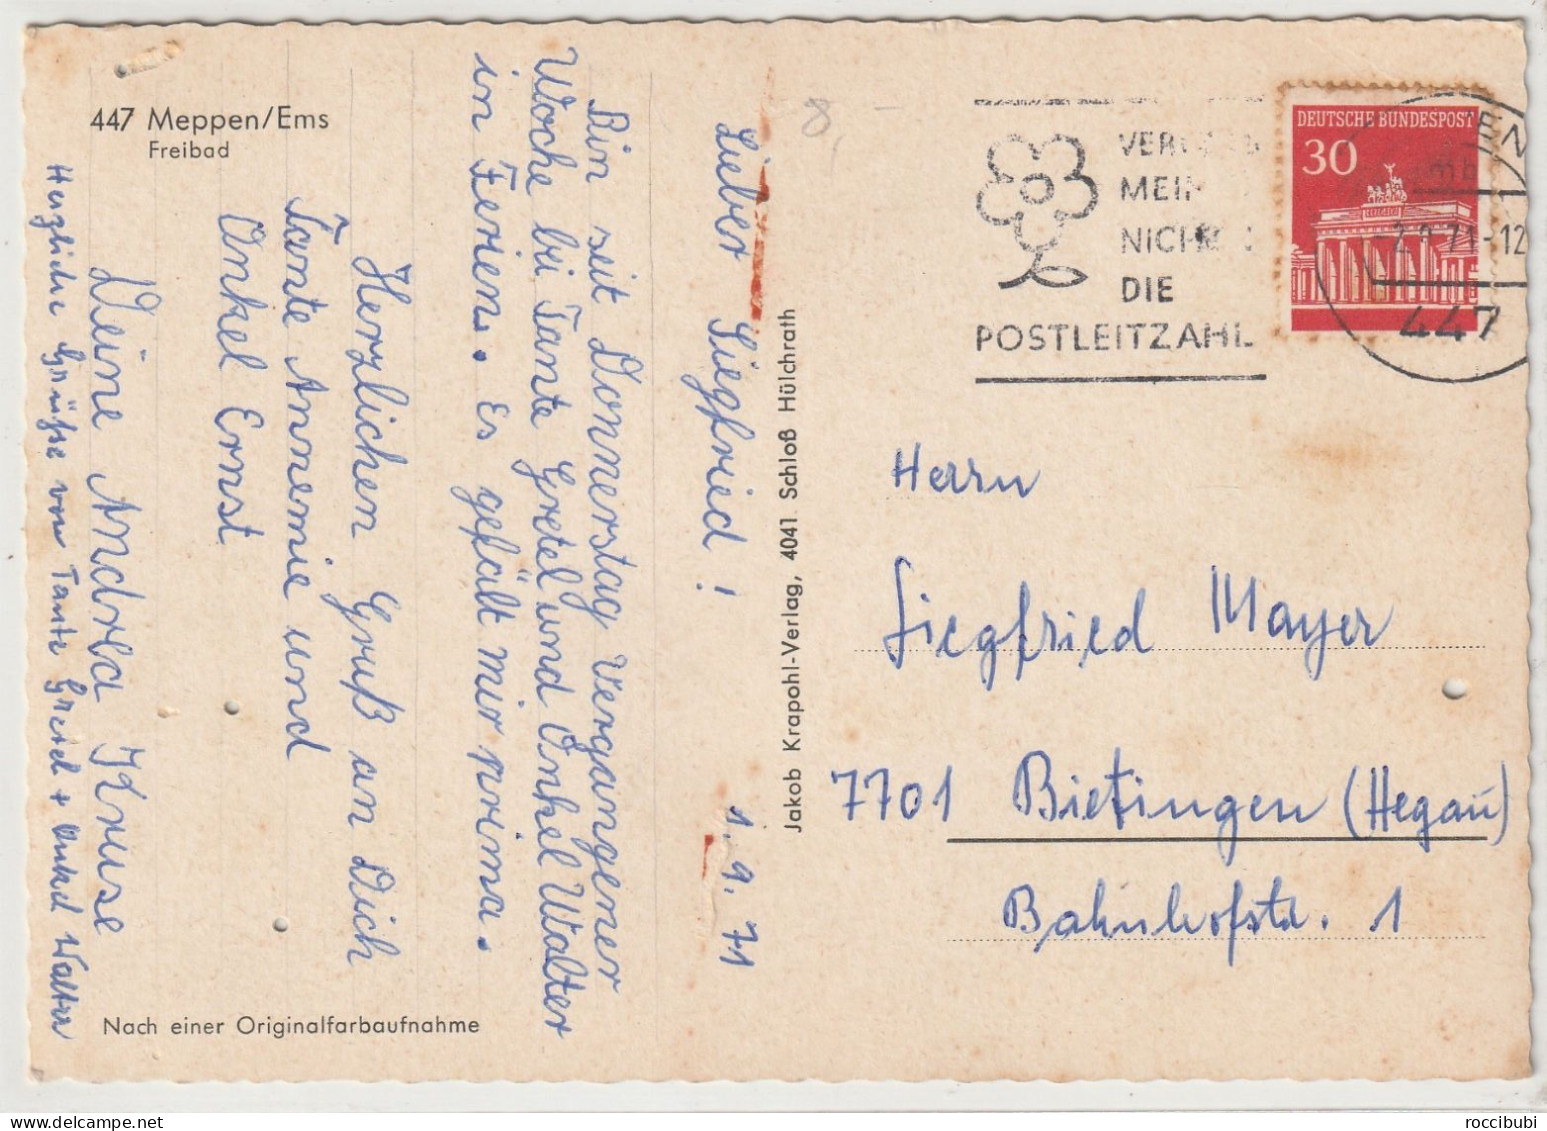 447 Meppen/Ems
Freibad
Lieber Siegfried!
1.9.71
Bin seit Donnerstag vergangener
Woche bei Tante Gretel und Onkel Walter
in Ferien. Es gefält mir prima.
Herzlichen Gruß an Dich
Tante Annemie und
Onkel Ernst
Deine Andrea Kruse
Herzliche Grüße von Tante Gretel + Onkel Walter
Nach einer Originalfarbaufnahme
Jakob Krapohl-Verlag, 4041 Schloß Hülchrath
MEIN
NICHT
DIE
POSTLEITZAHL
DEUTSCHE BUNDESPOST
30
mb
71-12
447
Herrn
Siegfried Mayer
7701 Bietingen (Hegau)
Bahnhofstr. 1
roccibubi